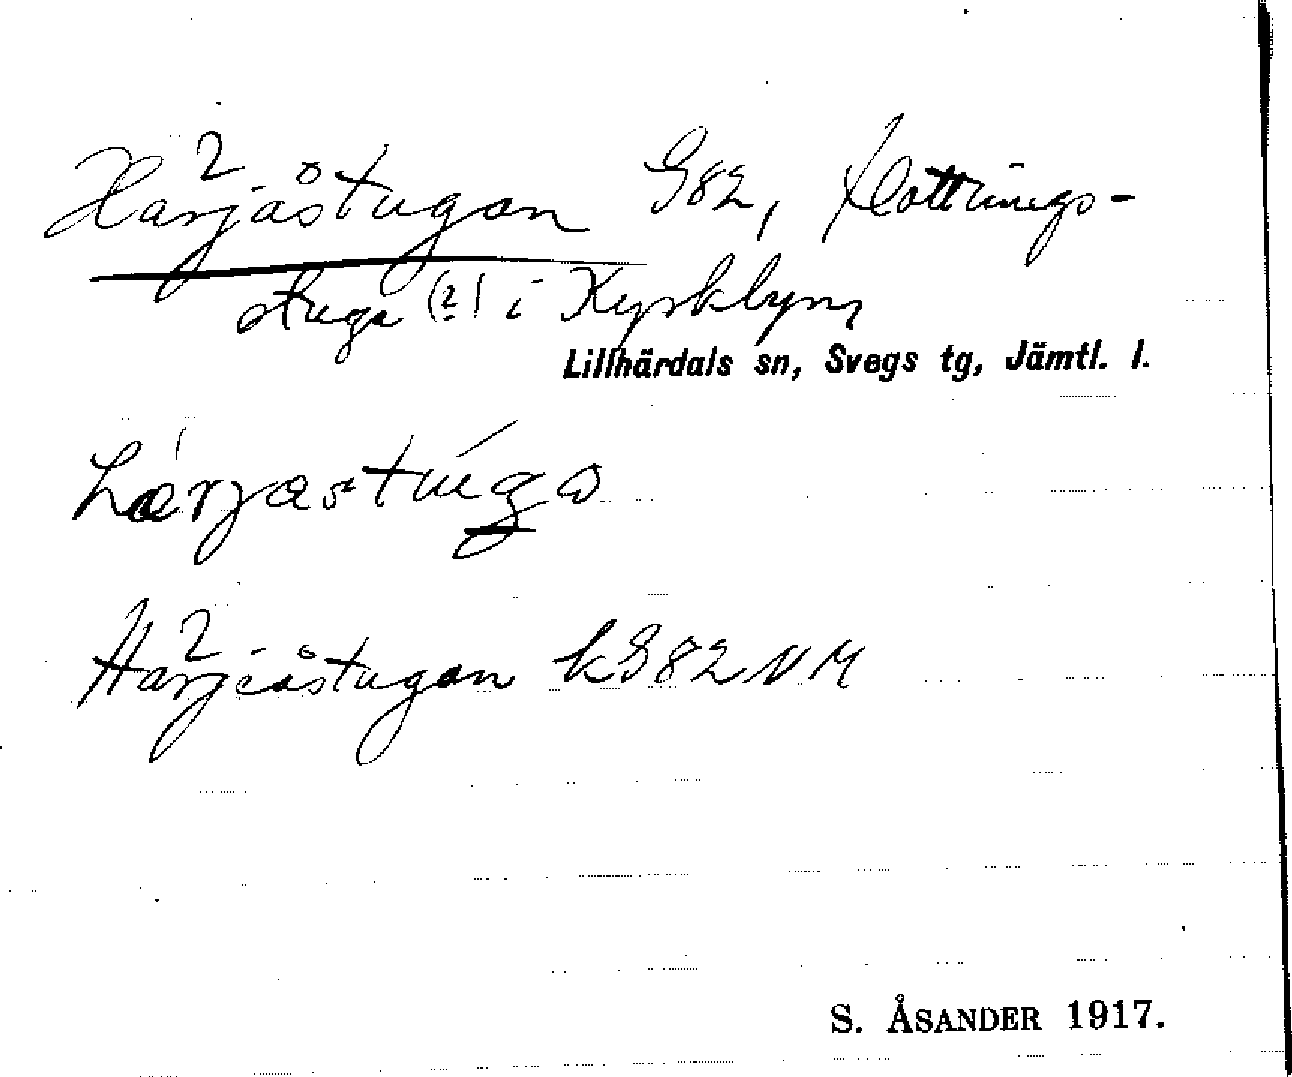 Härjåstugan G82, flottnings-
stuga (?) i Kyrkbyn,
Lillhärdals sn, Svegs tg, Jämtl. l.
hærjastugα
Härjeåstugan kG82NM
S. ÅSANDER 1917.